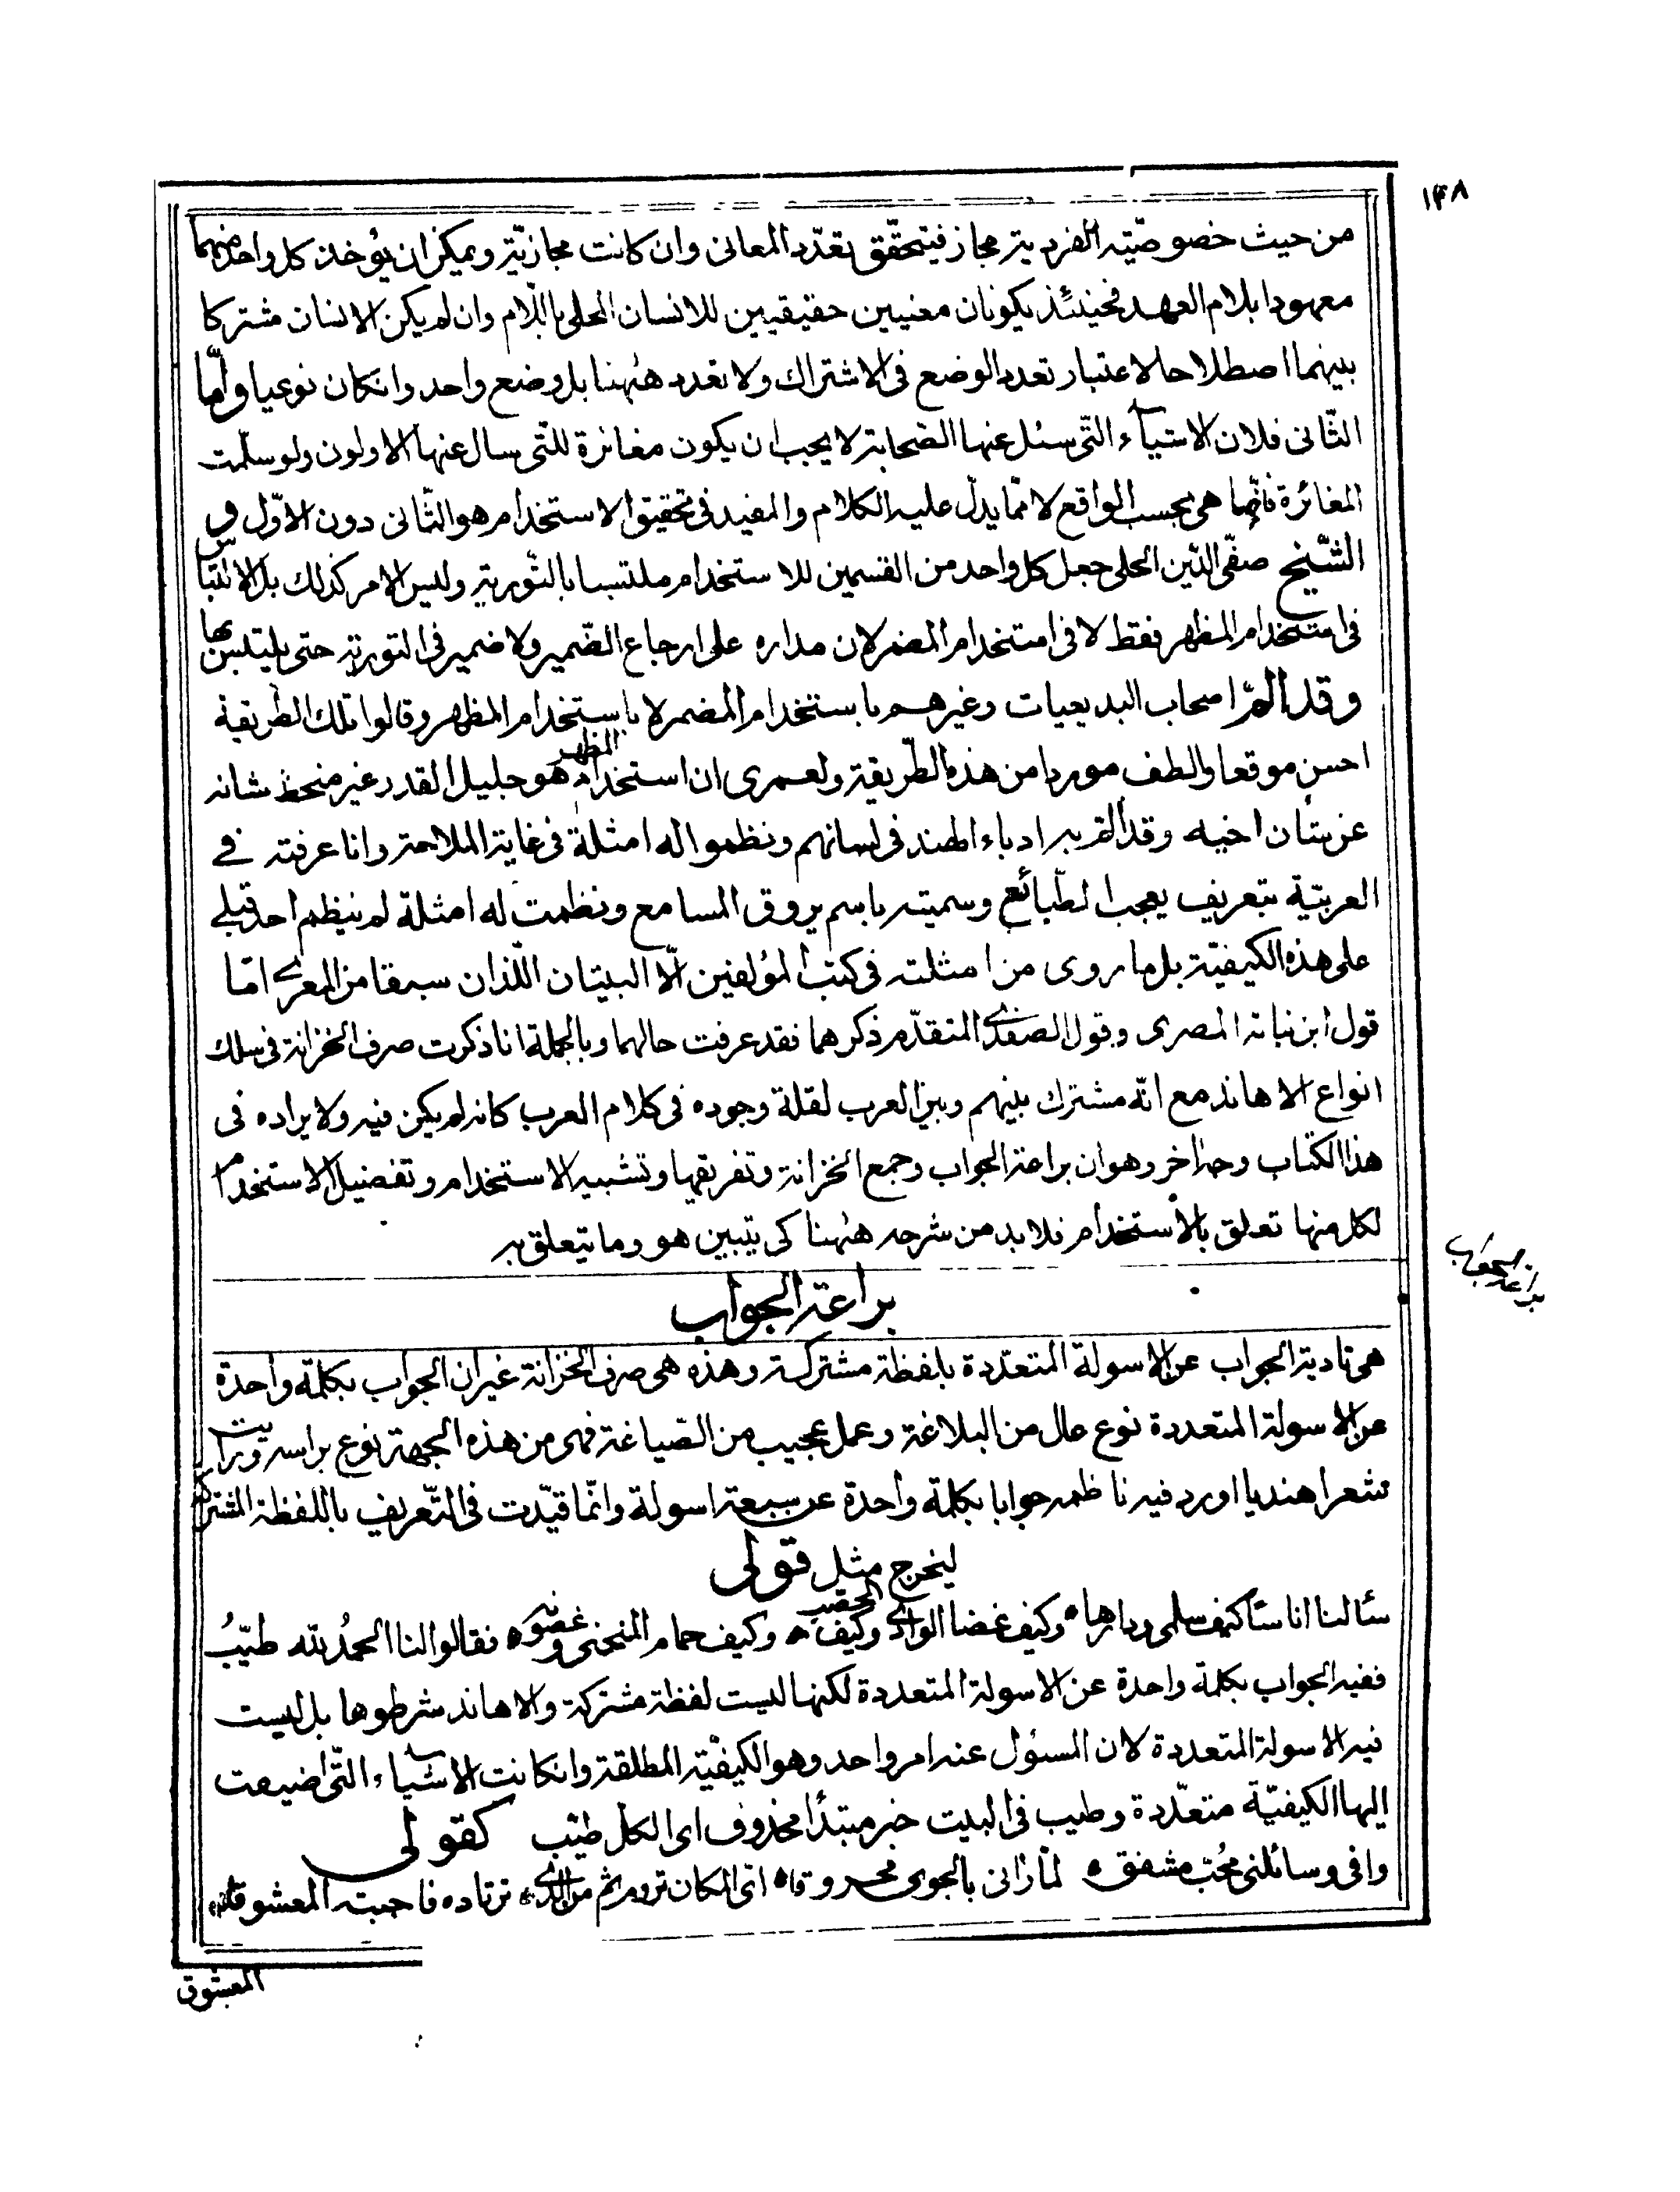 ١٣٨
من حيث خصوصيّته الفردية مجاز فيتحقّق تعدّد المعانى وان كانت مجازيّة ويمكن ان يؤخذ كل واحد منهما
معهودا بلام العهد فحينئذ يكونان معنيين حقيقيين للانسان المحلى باللّام وان لم يكن الانسان مشتركا
بينهما اصطلاحا لاعتبار تعدد الوضع فى الاشتراك ولا تعدد ههنا بل وضع واحد وانكان نوعيا وامّا
الثّانى فلان الاشياء التّى سئل عنها الصّحابة لا يجب ان يكون مغائرة للتّى سال عنها الاولون ولو سلّمت
المغائرة فانّها هى بحسب الواقع لا ممّا يدلّ عليه الكلام والمفيد فى تحقيق الاستخدام هو الثّانى دون الاوّل و
الشّيخ صفّى الدّين الحلى جعل كل واحد من القسمين للاستخدام ملتبسا بالتّورية وليس الامر كذلك بل الالتباس
فى استخدام المظهر فقط لا فى استخدام المضمر لان مداره على ارجاع الضّمير ولا ضمير فى التورية حتى يلتبس بها
وقد المّ اصحاب البديعيات وغيرهم باستخدام المضمر لا باستخدام المظهر وقالوا تلك الطّريقة
احسن موقعا والطف موردا من هذه الطّريقة ولعمرى ان استخدام المظهر هو جليل القدر غير منحط شانه
عن شأن اخيه وقد المّ به ادباء الهند فى لسانهم ونظموا له امثلة فى غاية الملاحة وانا عرفته فى
العربيّة بتعريف يعجب الطّبائع وسميته باسم يروق المسامع ونظمت له امثلة لم ينظم احد قبلى
على هذه الكيفيّة بل ما روى من امثلته فى كتب المؤلفين الّا البيتان اللّذان سبقا من المعرى امّا
قول ابن نباته المصرى وقول الصفدى المتقدّم ذكرهما فقد عرفت حالهما وبالجملة انا ذكرت صرف الخزانة فى سلك
انواع الاهاند مع انّه مشترك بينهم وبين العرب لقلة وجوده فى كلام العرب كانه لم يكن فيه ولايراده فى
هذا الكتاب وجه اخر وهو ان براعة الجواب وجمع الخزانة وتفريقها وتشبيه الاستخدام وتفضيل الاستخدام
لكل منها تعلق بالاستخدام فلا بد من شرحه ههنا كى يتبين هو وما يتعلق به
براعة الجواب
براعة الجواب
هى تادية الجواب عن الاسولة المتعدّدة بلفظة مشتركة وهذه هى صرف الخزانة غير ان الجواب بكلمة واحدة
عن الاسولة المتعددة نوع عال من البلاغة وعمل عجيب من الصّياغة فهى من هذه الجهة نوع براسه ورايت
شعرا هنديا اورد فيه ناظمه جوابا بكلمة واحدة عن سبعة اسولة وانّما قيّدت فى التّعريف باللفظة المشتركة
ليخرج مثل قولى
سئالنا اناسا كيف سلمى ودارها وكيف غضا الوادى وكيف الحصب وكيف حمام المنحنى وغصونه فقالوا لنا الحمدُ لله طيّبُ
ففيه الجواب بكلمة واحدة عن الاسولة المتعددة لكنها ليست لفظة مشتركة والاهاند شرطوها بل ليست
فيه الاسولة المتعددة لان المسئول عنه امر واحد وهو الكيفيّة المطلقة وانكانت الاشياء التّى اضيفت
اليها الكيفيّة متعدّدة وطيب فى البيت خبر مبتدأ محذوف اى الكل طيّب كقولى
وافى وسائلنى مُحبّ مشفق لمّا رانى بالجوى محروقا اىّ المكان تروم ثم من الذى ترتاده فاجبته المعشوقا
المعشوق